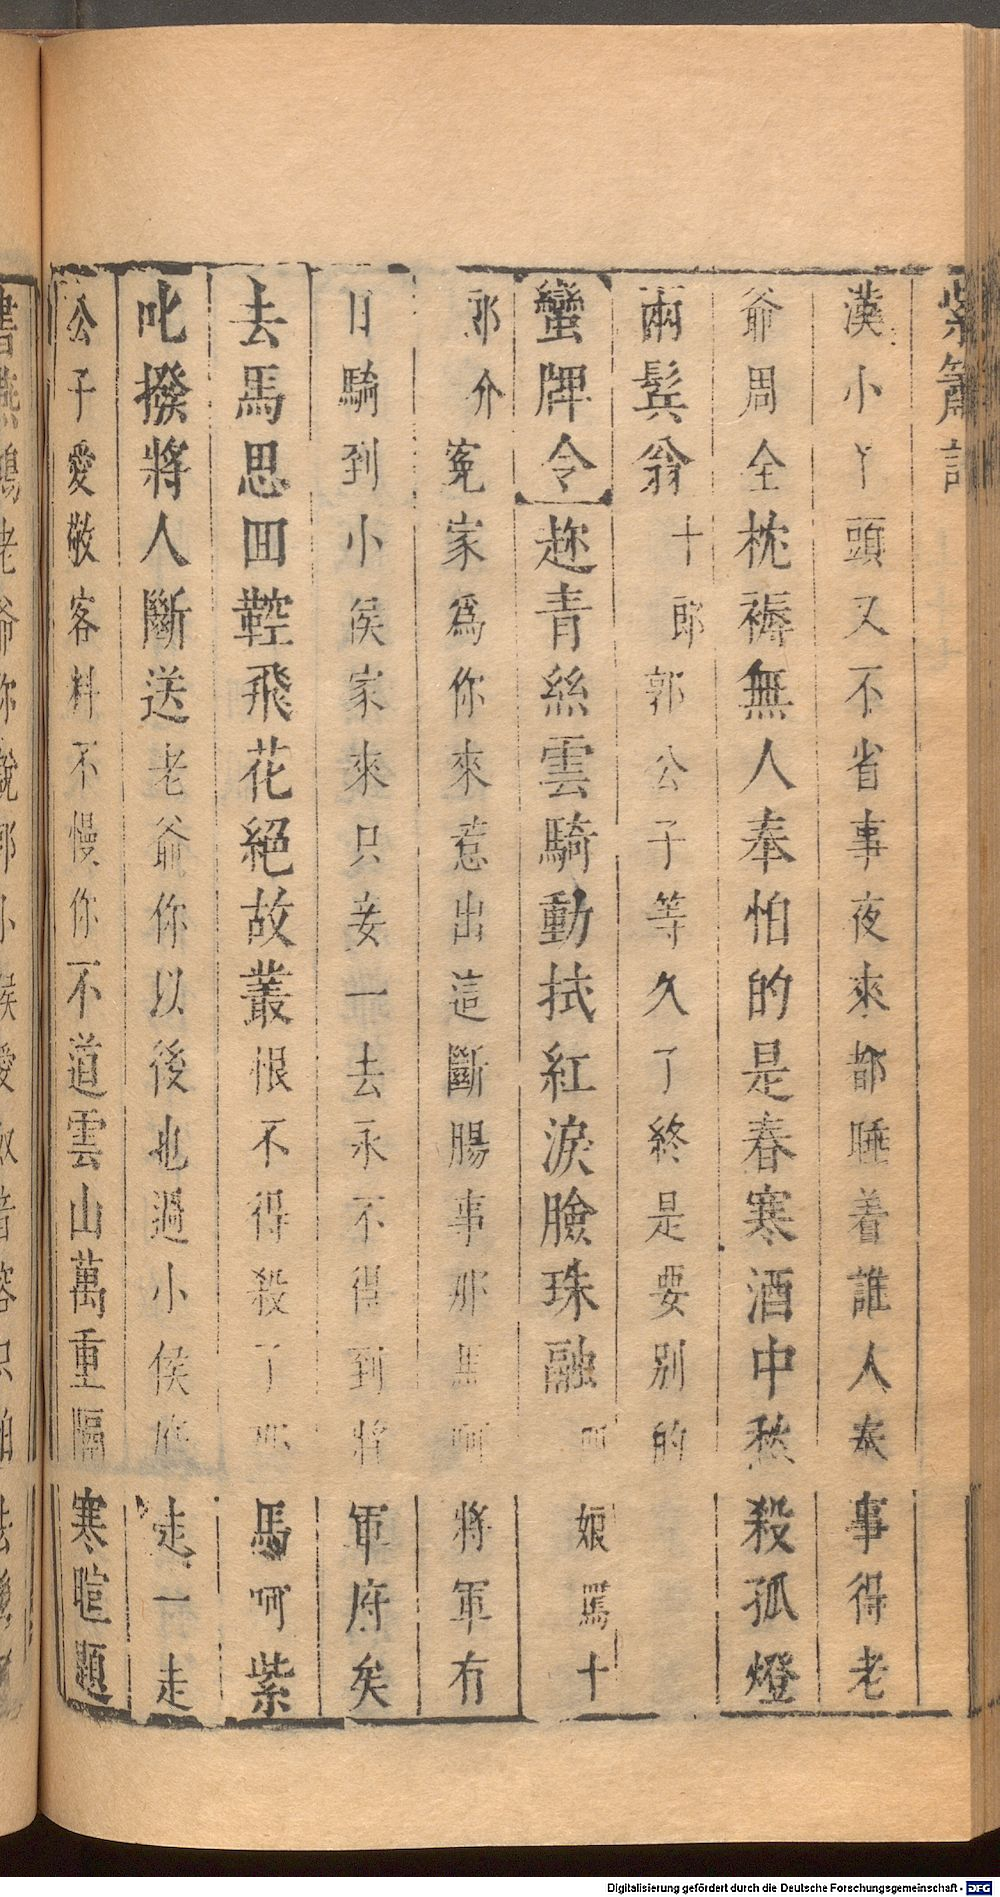 紫簫記
漢小丫頭又不省事夜來都睡着誰人奉事得老
爺周全枕褥無人奉怕的是春寒酒中愁殺孤燈
兩鬂翁十郎郭公子等久了終是要別的
蠻牌令趂青絲雲騎動拭紅淚臉珠融 娘罵十
郎介冤家爲你來惹出這斷腸事那馬呵將軍有
日騎到小侯家來只妾一去永不得到將軍府矣
去馬思囬鞚飛花絕故叢恨不得殺了 馬呵紫
叱撥將人斷送老爺你以後也過小侯府走一走
公子愛敬客料不慢你不道雲山萬重隔寒暄題
Digitalisierung gefördert durch die Deutsche Forschungsgemeinschaft - DFG